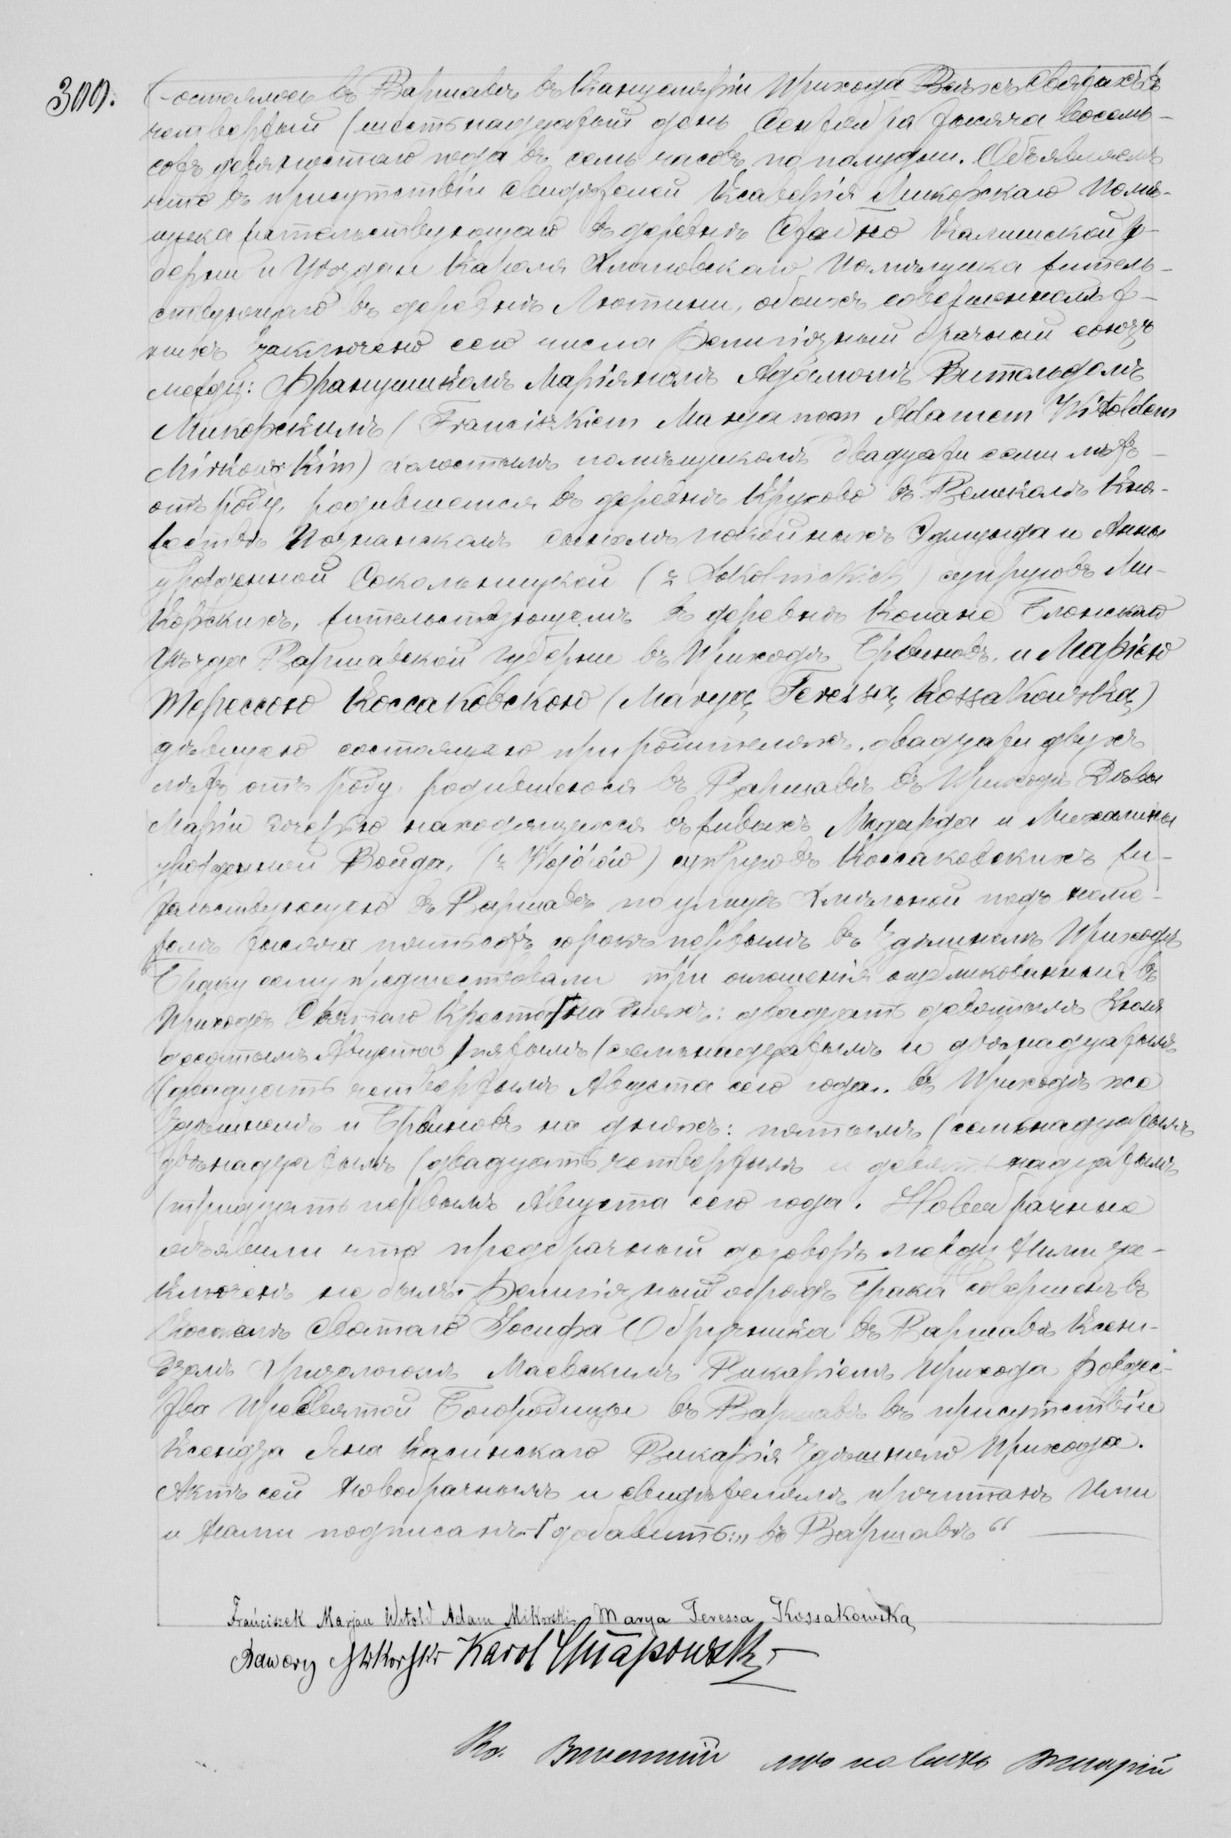 300.
Состоялось въ Варшавѣ въ Канцеляріи Прихода Всѣхъ Святыхъ
четвертый (шестьнадцатый день Сентября тысяча восемь-
сотъ девяностаго года въ семь часовъ по полудни. Объявляемъ
что въ присутствіи свидѣтелей Ксаверія Микорскаго Помѣ-
щика жительствующаго въ деревнѣ Калишской Гу-
берніи и Кароля Хлаповскаго Помѣщика житель-
ствующаго въ деревнѣ обоихъ совершеннолѣт-
нихъ заключенъ сего числа религіозный брачный союзъ
между: Францишкомъ Маріяномъ Адамомъ Витольдомъ
Микорскимъ (Franciszkiem Maryanem Adamem Witoldem
Mikorskim) холостымъ помѣщикомъ двадцати семи лѣтъ
отъ роду, родившемся въ деревнѣ Крухово въ Великомъ Кня-
жествѣ Познанскомъ сыномъ покойныхъ Эдмунда и Анны
урожденной Сокольницкой (z Sokolnickich) супруговъ Ми-
корскихъ, жительствующемъ въ деревнѣ Копане Блонскаго
Уѣзда Варшавской Губерніи въ Приходѣ Брвиновъ, и Маріею
Терессою Коссаковскою (Maryą Teressą Kossakowską)
дѣвицею состоящею при родителяхъ, двадцати двухъ
лѣтъ отъ роду, родившеюся въ Варшавѣ въ Приходѣ Дѣвы
Маріи дочерью находящихся въ живыхъ Медарда и Михалины
урожденной Войда, (z Wojdów) супруговъ Коссаковскихъ жи-
тельствующею въ Варшавѣ по улицѣ Хмѣльной подъ номе-
ромъ тысяча пятьсотъ сорокъ первымъ въ здѣшнемъ Приходѣ
Браку сему предшествовали три оглашенія опубликованныя въ
Приходѣ Святаго Креста Г на дняхъ: двадцать девятымъ Іюля
десятымъ Августа, пятымъ (семьнадцатымъ и двѣнадцатымъ
(двадцать четвертымъ Августа сего года. въ Приходѣ же
здѣшнемъ и Брвиновъ на дняхъ: пятымъ (семьнадцатымъ
двѣнадцатымъ (двадцать четвертымъ и девятьнадцатымъ
(тридцать первымъ Августа сего года. Новобрачные
объявили что предбрачный договоръ между ними за-
ключенъ не былъ. Религіозный обрядъ брака совершенъ въ
Костелѣ Святаго Іосифа Обручника въ Варшавѣ Ксен-
дзомъ Маевскимъ Викаріемъ Прихода Рождес-
тва Пресвятой Богородицы въ Варшавѣ въ присутствіи
Ксендза Яна Касинскаго Викарія здѣшняго Прихода.
Актъ сей новобрачнымъ и свидѣтелямъ прочитанъ Ими
и Нами подписанъ. Г добавить: „въ Варшавѣ“
Franciszek Marjan Witold Adam Mikorski Marya Teressa Kossakowska
Xawery Mikorski Karol Chłapowski
Кс. Викарій